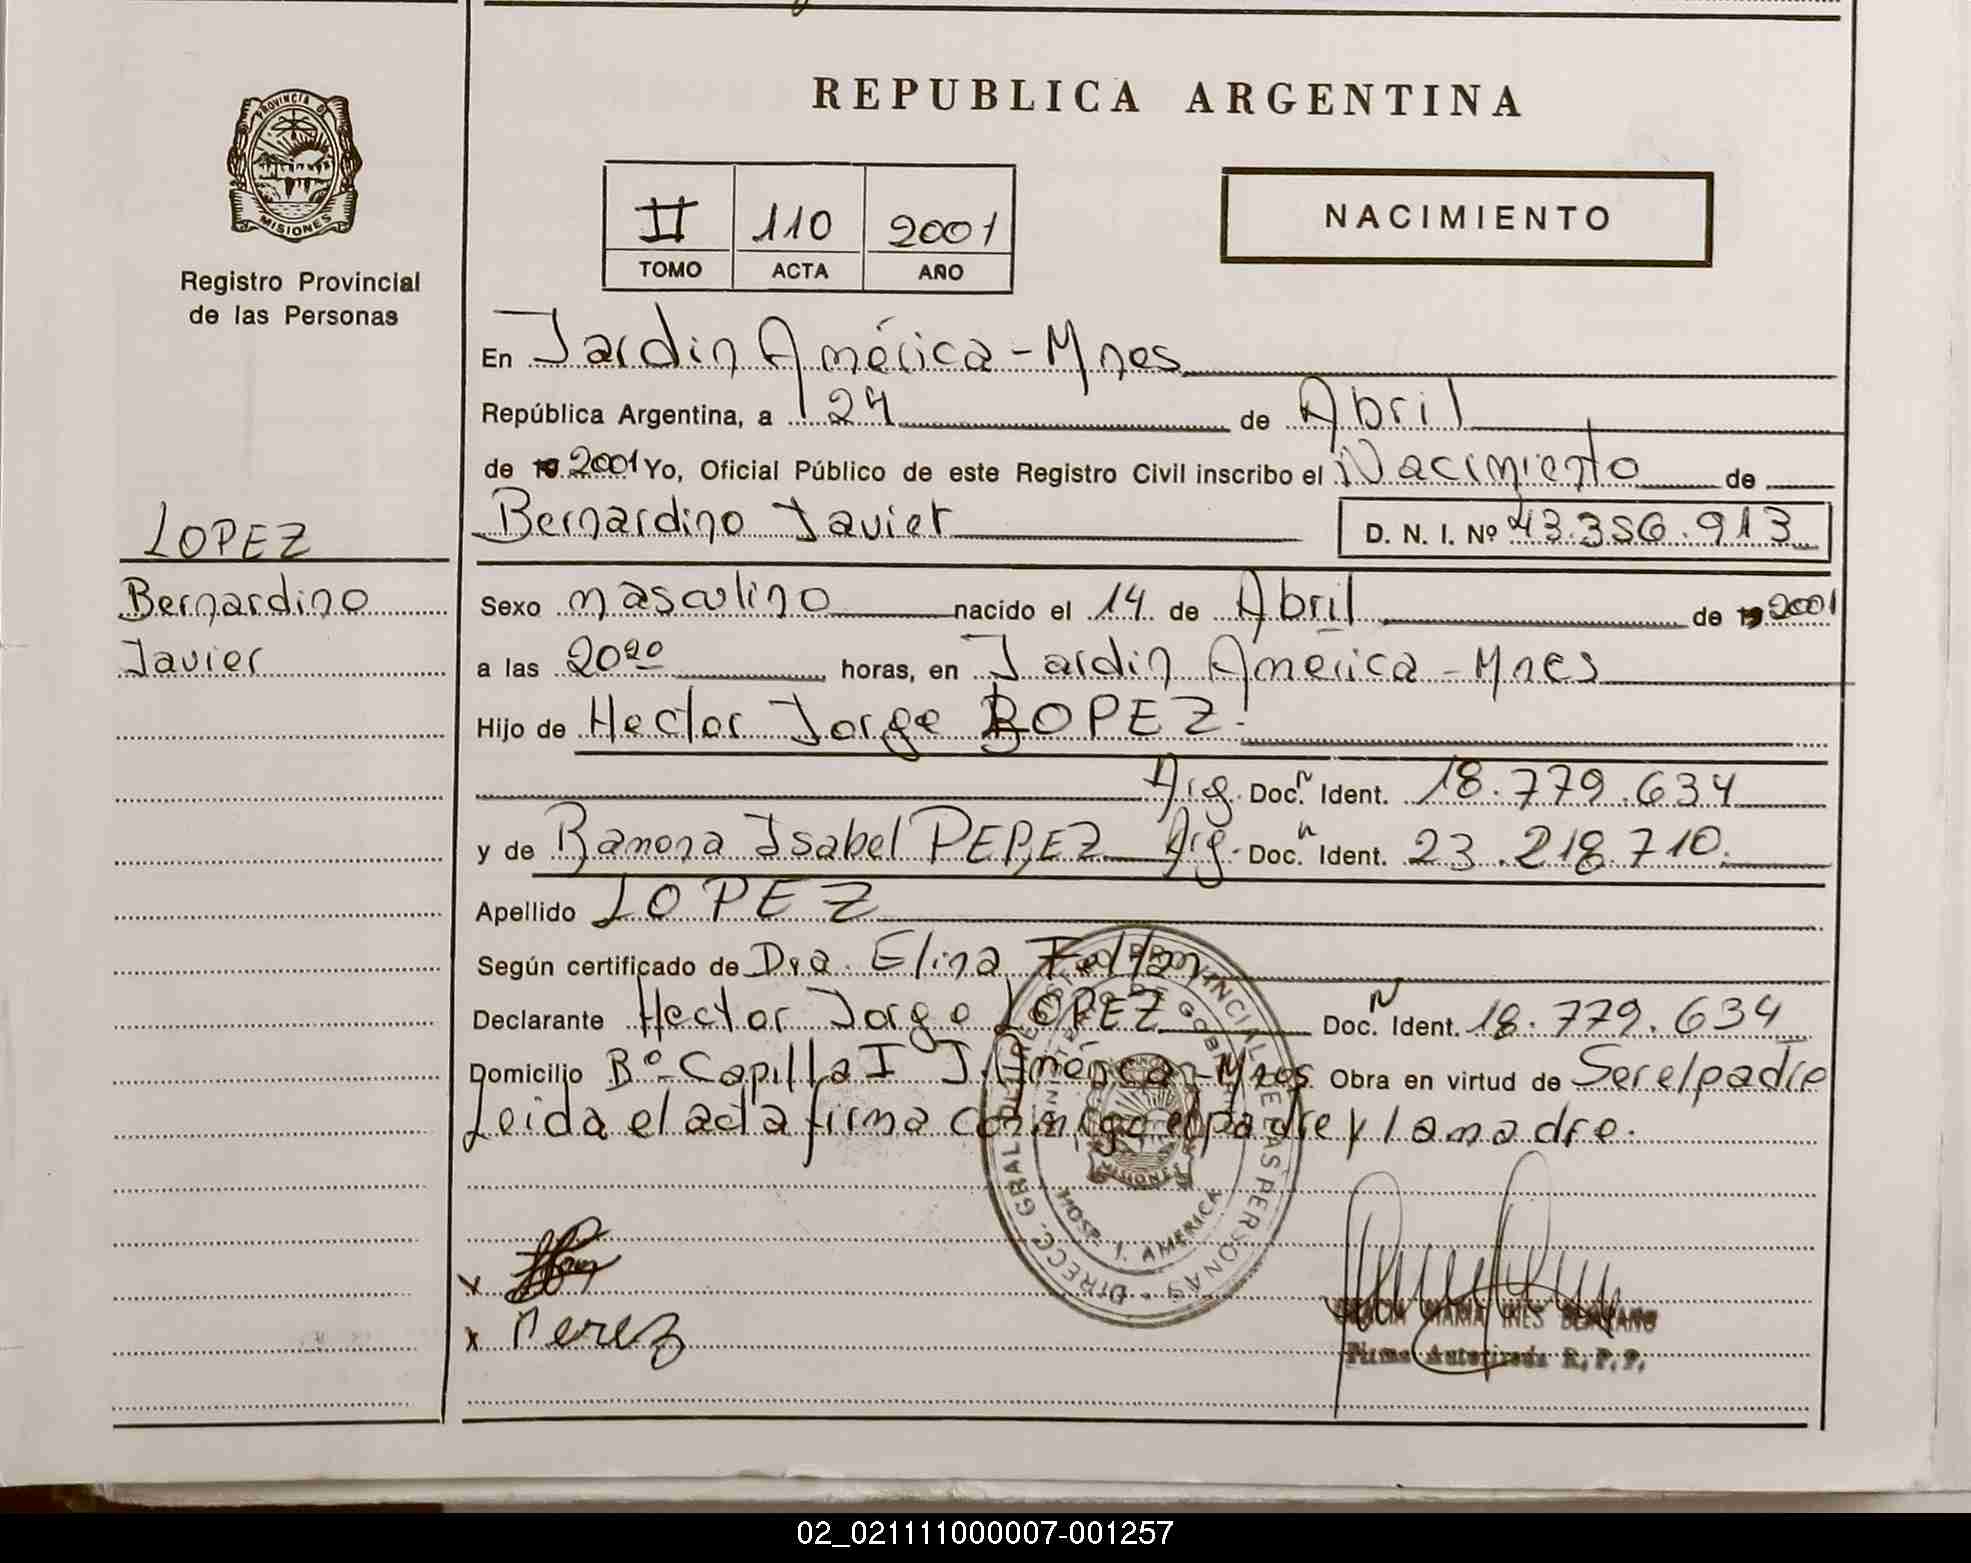 REPUBLICA ARGENTINA
PROVINCIA DE
MISIONES
Registro Provincial
de las Personas
II 110 2001
TOMO ACTA AÑO
NACIMIENTO
En Jardin América - Mnes
República Argentina, a 24 de Abril
de 19 2001 Yo, Oficial Público de este Registro Civil inscribo el Nacimiento de
Bernardino Javier D. N. I. Nº 43.356.913
LOPEZ
Bernardino
Javier
Sexo masculino nacido el 14 de Abril de 19 2001
a las 20²⁰ horas, en Jardin América - Mnes
Hijo de Hector Jorge LOPEZ
Arg. Doc. N Ident. 18.779.634
y de Ramona Isabel PEREZ Arg. Doc. N Ident. 23.218.710.
Apellido LOPEZ
Según certificado de Dra. Elina
Declarante Hector Jorge LOPEZ Doc. N Ident. 18.779.634
Domicilio Bº Capilla I J. América - Mnes Obra en virtud de Ser el padre
Leida el acta firma conmigo el padre y la madre.
DIRECC. GRAL. DEL REGISTRO PROVINCIAL DE LAS PERSONAS
MINISTERIO DE GOBIERNO
MISIONES
HOSP. J. AMERICA
x
x Perez
MARIA INES
Firma Autorizada R. P. P.
02_021111000007-001257